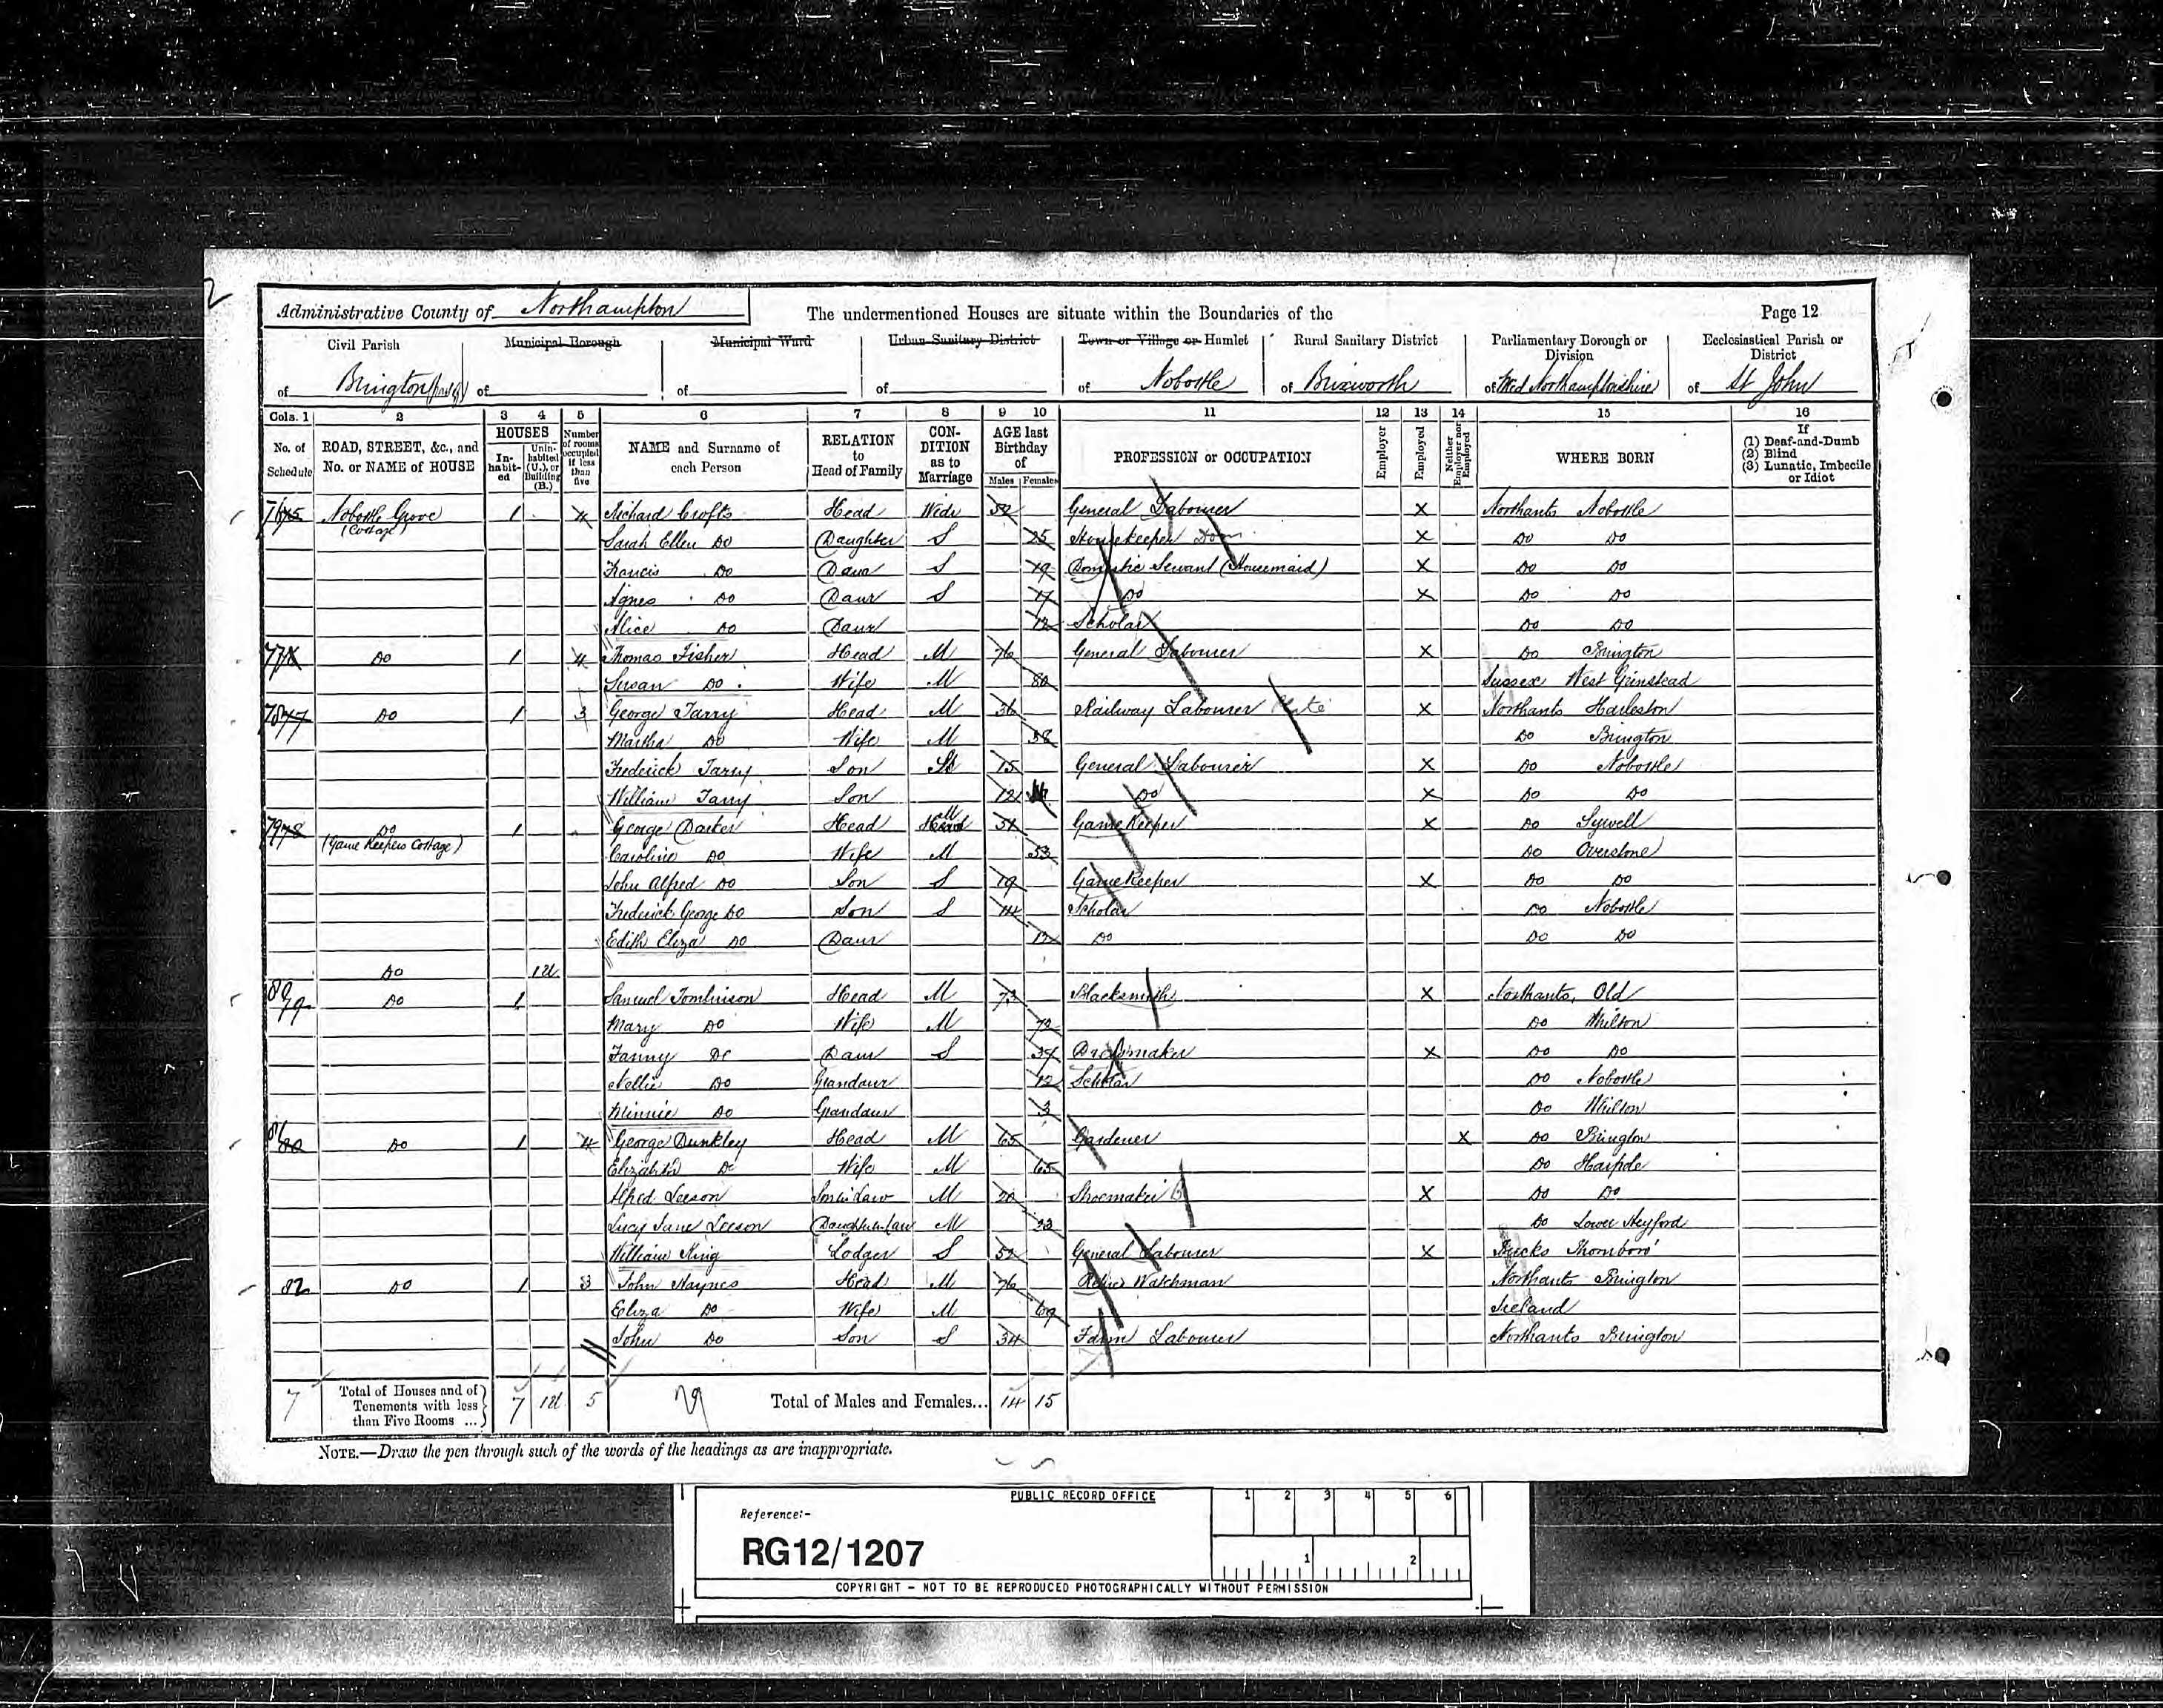 Administrative County of Northampton The undermentioned Houses are situate within the Boundaries of the Page 12
Civil Parish Municipal Borough Municipal Ward Urban Sanitary District Town or Village or Hamlet Rural Sanitary District Parliamentary Borough or Division Ecclesiastical Parish or District
of Brington (part of) of of of of Nobottle of Brixworth of Mid Northamptonshire of St John
Cols. 1 2 3 4 5 6 7 8 9 10 11 12 13 14 15 16
No. of Schedule ROAD, STREET, &c., and No. or NAME of HOUSE HOUSES Inhabited Uninhabited (U.), or Building (B.) Number of rooms occupied if less than five NAME and Surname of each Person RELATION to Head of Family CONDITION as to Marriage AGE last Birthday of Males Females PROFESSION or OCCUPATION Employer Employed Neither Employer nor Employed WHERE BORN If (1) Deaf-and-Dumb (2) Blind (3) Lunatic, Imbecile or Idiot
76 Nobottle Grove (Cottage) 1 4 Richard Crofts Head Widr 52 General Labourer X Northants Nobottle
Sarah Ellen Do Daughter S 25 Housekeeper Dom X Do Do
Francis Do Daur S 19 Domestic Servant (Housemaid) X Do Do
Agnes Do Daur S 17 Do X Do Do
Alice Do Daur 12 Scholar Do Do
77 Do 1 4 Thomas Fisher Head M 76 General Labourer X Do Brington
Susan Do Wife M 80 Sussex West Grinstead
78 Do 1 3 George Tarry Head M 36 Railway Labourer Plate X Northants Harleston
Martha Do Wife M 38 Do Brington
Frederick Tarry Son S 15 General Labourer X Do Nobottle
William Tarry Son 12 Do X Do Do
79 Do (Game Keepers Cottage) 1 George Barker Head M Gamekeeper X Do Sywell
Caroline Do Wife M 53 Do Overstone
John Alfred Do Son S 19 Gamekeeper X Do Do
Frederick George Do Son S 14 Scholar Do Nobottle
Edith Eliza Do Daur Do Do Do
Do 1U
80 Do 1 Samuel Tomlinson Head M 73 Blacksmith X Northants, Old
Mary Do Wife M 72 Do Whilton
Fanny Do Daur S Dressmaker X Do Do
Nellie Do Grandaur 12 Scholar Do Nobottle
Minnie Do Grandaur 3 Do Whilton
81 Do 1 4 George Dunkley Head M 65 Gardener X Do Brington
Elizabeth Do Wife M 65 Do Harpole
Alfred Leeson Son in Law M 20 Shoemaker X Do Do
Lucy Jane Leeson Daughter in law M Do Lower Heyford
William King Lodger S 52 General Labourer X Bucks Thornboro'
82 Do 1 3 John Haynes Head M 76 Watchman Northants Brington
Eliza Do Wife M 69 Ireland
John Do Son S 34 Farm Labourer Northants Brington
7 Total of Houses and of Tenements with less than Five Rooms ... 7 1U 5 29 Total of Males and Females... 14 15
NOTE.—Draw the pen through such of the words of the headings as are inappropriate.
PUBLIC RECORD OFFICE 1 2 3 4 5 6
Reference:-
RG12/1207 1 2
COPYRIGHT - NOT TO BE REPRODUCED PHOTOGRAPHICALLY WITHOUT PERMISSION